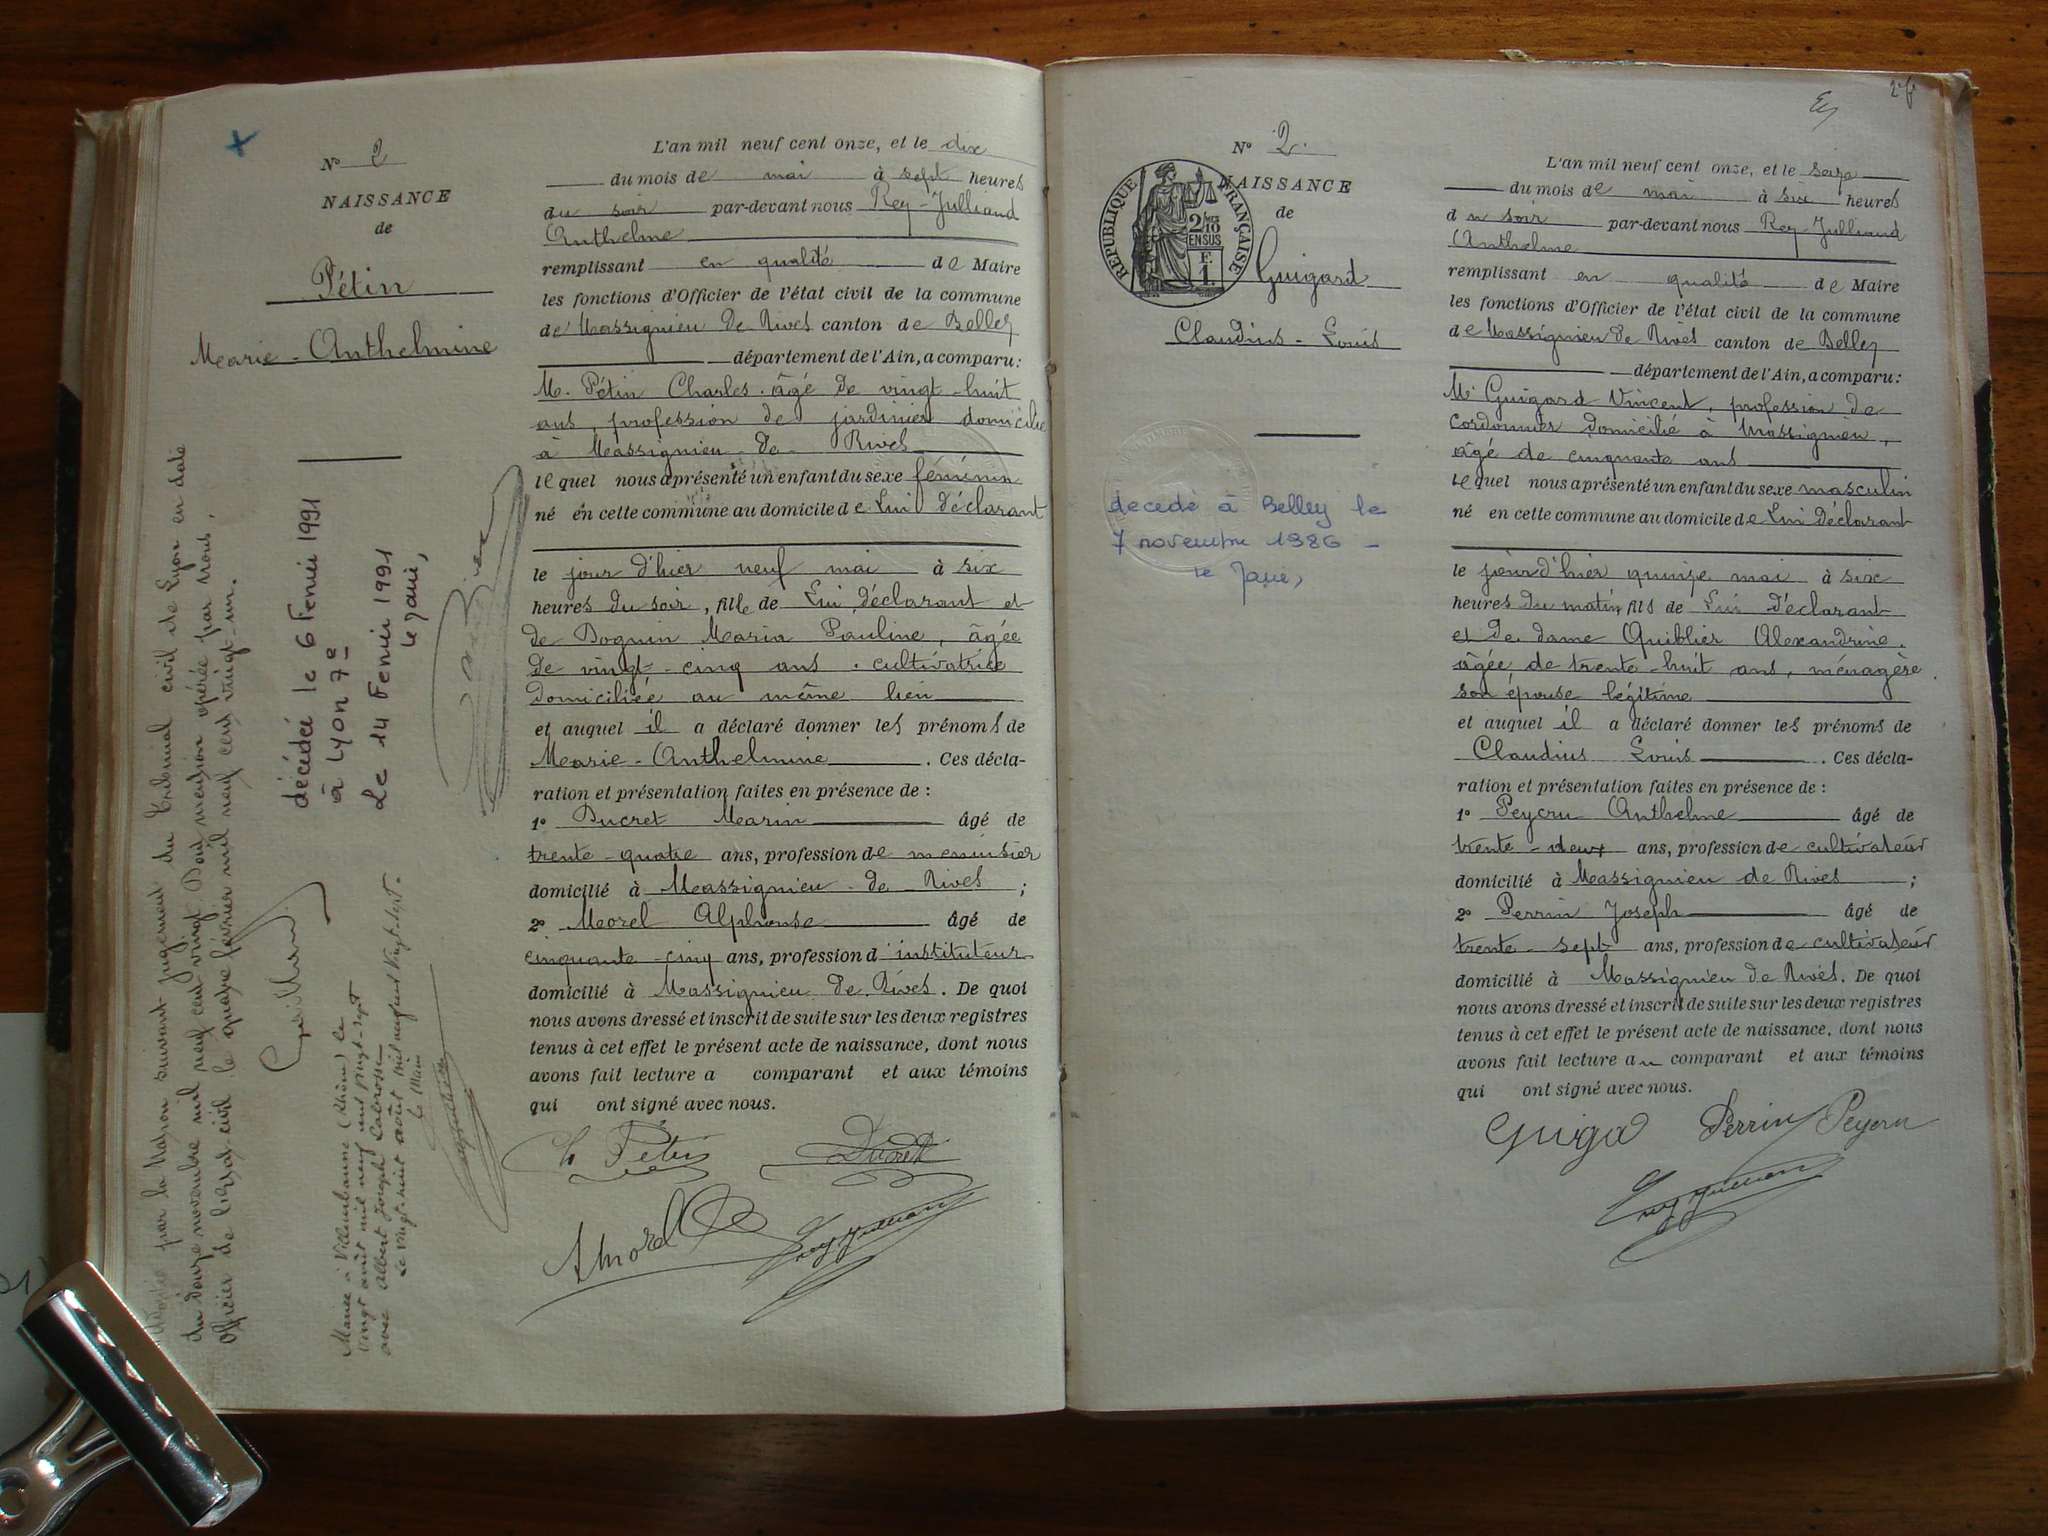 N° 2
NAISSANCE
de
Pétin
Marie-Anthelmine
L'an mil neuf cent onze, et le dix
du mois de mai à sept heures
du soir par-devant nous Rey-Julliand
Anthelme
remplissant en qualité de Maire
les fonctions d'Officier de l'état civil de la commune
de Massignieu de Rives canton de Belley
département de l'Ain, a comparu:
M. Pétin Charles. âgé de vingt-huit
ans, profession de jardinier domicilié
à Massignieu-de-Rives
lequel nous a présenté un enfant du sexe féminin
né en cette commune au domicile de Lui déclarant
le jour d'hier neuf mai à six
heures du soir, fille de Lui déclarant et
de Doguin Maria Pauline, âgée
de vingt-cinq ans. cultivatrice
domiciliée au même lieu
et auquel il a déclaré donner les prénoms de
Marie-Anthelmine. Ces décla-
ration et présentation faites en présence de :
1° Ducret Marin âgé de
trente-quatre ans, profession de menuisier
domicilié à Massignieu-de-Rives ;
2° Morel Alphonse âgé de
cinquante-cinq ans, profession d'instituteur
domicilié à Massignieu de Rives. De quoi
nous avons dressé et inscrit de suite sur les deux registres
tenus à cet effet le présent acte de naissance, dont nous
avons fait lecture a comparant et aux témoins
qui ont signé avec nous.
Ch Pétin Ducret
AMorel Rey Julliand
par la Nation suivant jugement du Tribunal civil de Lyon en date
du douze novembre mil neuf cent vingt Dont mention opérée par Nous,
Officier de l'état-civil le quatre février mil neuf cent vingt-un.
décédée le 6 Fevrier 1991
à Lyon 7e
Le 14 Fevrier 1991
le Maire,
Mariée à Villeurbanne (Rhône) le
vingt août mil neuf cent vingt-sept
avec Albert Joseph
Le vingt-huit août mil neuf cent vingt-sept.
Le Maire
N° 2.
NAISSANCE
de
RÉPUBLIQUE FRANÇAISE
2/10
EN SUS
F.
1.
Guigard
Claudius-Louis
decedé à Belley le
7 novembre 1986 -
le Maire,
L'an mil neuf cent onze, et le seize
du mois de mai à six heures
du soir par-devant nous Rey-Julliand
Anthelme
remplissant en qualité de Maire
les fonctions d'Officier de l'état civil de la commune
de Massignieu de Rives canton de Belley
département de l'Ain, a comparu:
Mr Guigard Vincent, profession de
cordonnier domicilié à Massignieu,
âgé de cinquante ans
lequel nous a présenté un enfant du sexe masculin
né en cette commune au domicile de Lui déclarant
le jour d'hier quinze mai à six
heures du matin, fils de Lui déclarant
et de dame Quiblier Alexandrine.
âgée de trente-huit ans, ménagère
son épouse légitime
et auquel il a déclaré donner les prénoms de
Claudius Louis. Ces décla-
ration et présentation faites en présence de :
1° Peycru Anthelme âgé de
trente-deux ans, profession de cultivateur
domicilié à Massignieu de Rives ;
2° Perrin Joseph âgé de
trente-sept ans, profession de cultivateur
domicilié à Massignieu de Rives. De quoi
nous avons dressé et inscrit de suite sur les deux registres
tenus à cet effet le présent acte de naissance, dont nous
avons fait lecture au comparant et aux témoins
qui ont signé avec nous.
Guiga Perrin Peycru
Rey Julliand